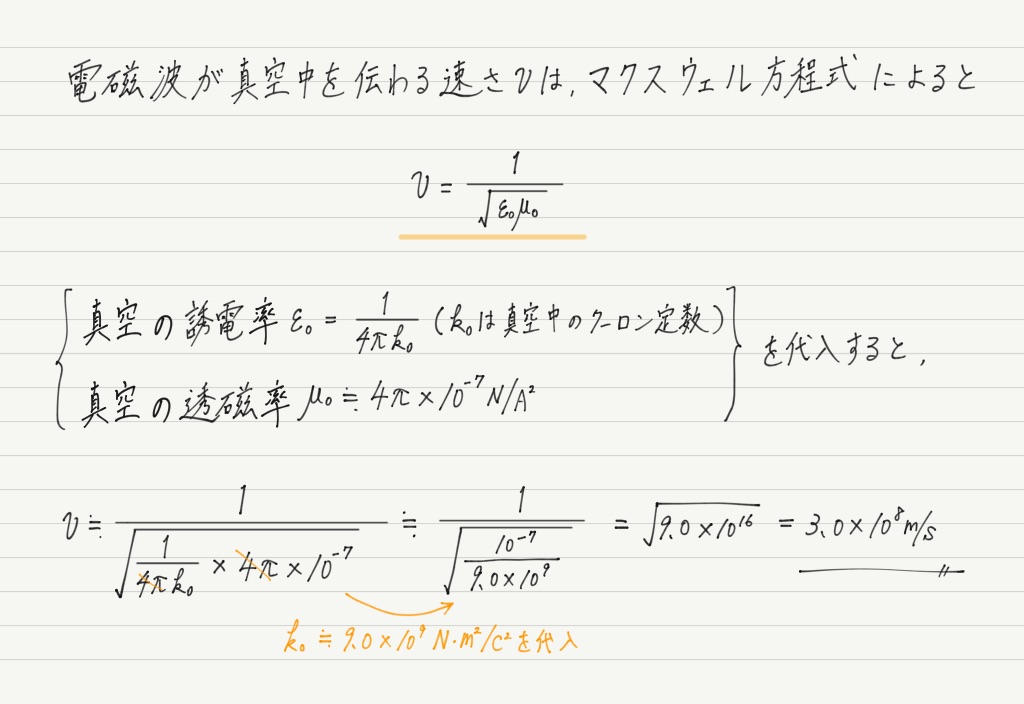 電磁波が真空中を伝わる速さvは,マクスウェル方程式によると
v = 1/√(ε₀μ₀)
{ 真空の誘電率 ε₀ = 1/(4πk₀) (k₀は真空中のクーロン定数)
真空の透磁率 μ₀ ≒ 4π×10⁻⁷ N/A² } を代入すると,
v ≒ 1/√(1/(4πk₀) × 4π×10⁻⁷) ≒ 1/√(10⁻⁷/(9.0×10⁹)) = √(9.0×10¹⁶) = 3.0×10⁸ m/s
k₀ ≒ 9.0×10⁹ N·m²/C² を代入